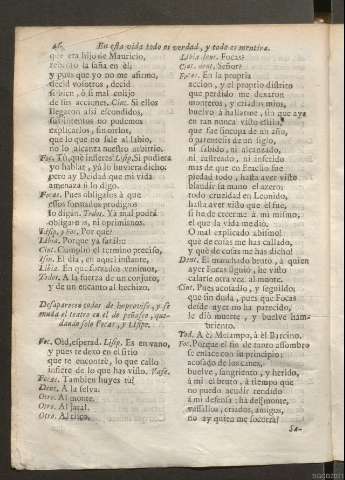 46 En esta vida todo es verdad, y todo es mentira.
que era hijo de Mauricio,
la saña en èl;
y pues que yo no me afirmo,
decid vosotros, decid
si bien, ò si mal colijo
de sus acciones. Cint. Si ellos
llegaron assi escondidos,
sus intentos no podemos
explicarlos, sin oirlos,
que lo que no sale al labio,
no lo alcanza nuestro arbitrio.
Foc. Tù, què infieres? Lisip. Si pudiera
yo hablar, yà lo huviera dicho:
pero ay Deidad que mi vida
amenaza si lo digo.
Focas. Pues obligalos à que
essos forzados prodigios
lo digan. Todos. Ya mal podrà
obligarnos, ni oprimirnos.
Lisip. y Foc. Por què?
Libia. Porque ya fatàl
Cint. Cumpliò el termino preciso,
Ism. El dia, en aquel instante,
Libia. En que forzados venimos,
Todos. A la fuerza de un conjuro,
y de un encanto al hechizo.
Desaparecen todos de improviso, y se
muda el teatro en el de peñasco, que-
dando solo Focas, y Lisipo.
Foc. Oid, esperad. Lisip. Es en vano,
y pues te dexo en el sitio
que te encontrè, lo que callo
infiere de lo que has visto. Vase.
Focas. Tambien huyes tu?
Dent. A la selva.
Otro. Al monte.
Otro. Al jaral.
Otro. Al risco.
Libia dent. Focas?
Cint. dent. Señor?
Focas. En la propria
accion, y el proprio distrito
que perdido me dexaron
monteros, y criados mios,
buelvo à hallarme, sin que aya
en tan nunca visto
que fue sincopa de un año,
ò parentesis de un siglo,
ni sabido, ni alcanzado,
ni rastreado, ni inferido
mas de que en Eraclio fue
piedad todo, hasta aver visto
blandir su mano el azero:
todo crueldad en Leonido,
hasta aver visto que el fue,
si he de creerme à mi mismo,
el que la vida me diò.
O mal explicado abismo!
què de cosas me has callado,
y què de cosas me has dicho!
Dent. El enmudado bruto, à quien
ayer Focas siguiò, he visto
calarse otra vez al monte.
Cint. Pues acosadlo, y seguidlo:
que sin duda, pues que Focas
desde ayer no ha parecido,
le diò muerte, y buelve ham-
briento.
Tod. A el Melampo, à el Barcino.
Foc. Porque el fin de tanto assombro
se enlace con su principio:
acosado de los canes,
buelve, sangriento, y herido,
à mi el bruto, à tiempo que
no puedo acudir rendido
à mi defensa; ha del monte,
vassallos, criados, amigos,
no ay quien me socorra?
Sa-